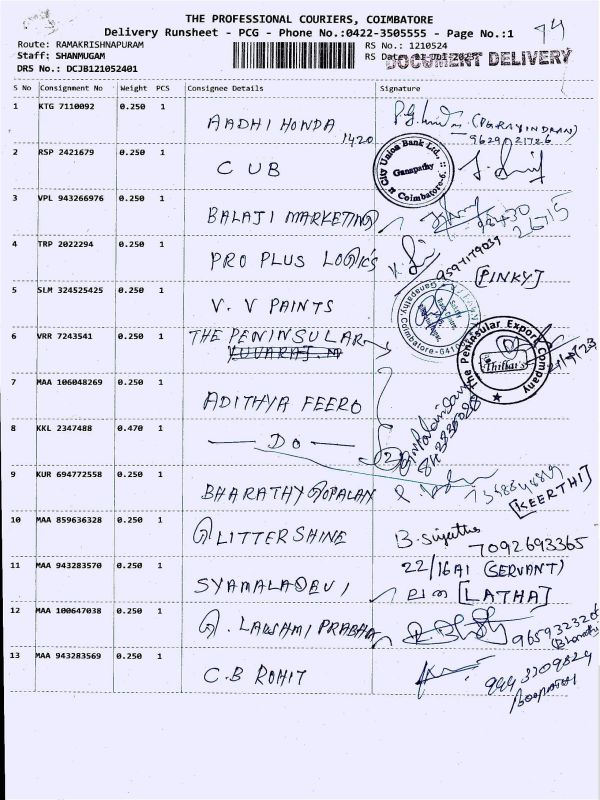 THE PROFESSIONAL COURIERS, COIMBATORE
Delivery Runsheet - PCG - Phone No.:0422-3505555 - Page No.:1
74
Route: RAMAKRISHNAPURAM
RS No.: 1210524
Staff: SHANMUGAM
RS Date:
DOCUMENT DELIVERY
DRS No.: DCJB121052401
S No Consignment No Weight PCS Consignee Details Signature
1 KTG 7110092 0.250 1 AADHI HONDA 1420
9629021726
2 RSP 2421679 0.250 1 CUB
City Union Bank Ltd., Ganapathy Coimbatore-6.
3 VPL 943266976 0.250 1 BALAJI MARKETING
26715
4 TRP 2022294 0.250 1 PRO PLUS LOGIK'S
9597179039
[PINKY]
5 SLM 324525425 0.250 1 V. V PAINTS
Ganapathy, Coimbatore-641
6 VRR 7243541 0.250 1 THE PENINSULAR
YUVARAJ. M
The Peninsular Export Company
Thillai's
7 MAA 106048269 0.250 1 ADITHYA FEERO
8 KKL 2347488 0.470 1 — DO —
2
9 KUR 694772558 0.250 1 BHARATHY GOPALAN
[KEERTHI]
10 MAA 859636328 0.250 1 GLITTERSHINE
B. Sujatha
7092693365
11 MAA 943283570 0.250 1 SYAMALADEVI
22/16A1 (SERVANT)
லதா [LATHA]
12 MAA 100647038 0.250 1 G. LAKSHMI PRABHA
(Bharathi)
13 MAA 943283569 0.250 1 C.B ROHIT
BOOPATHI